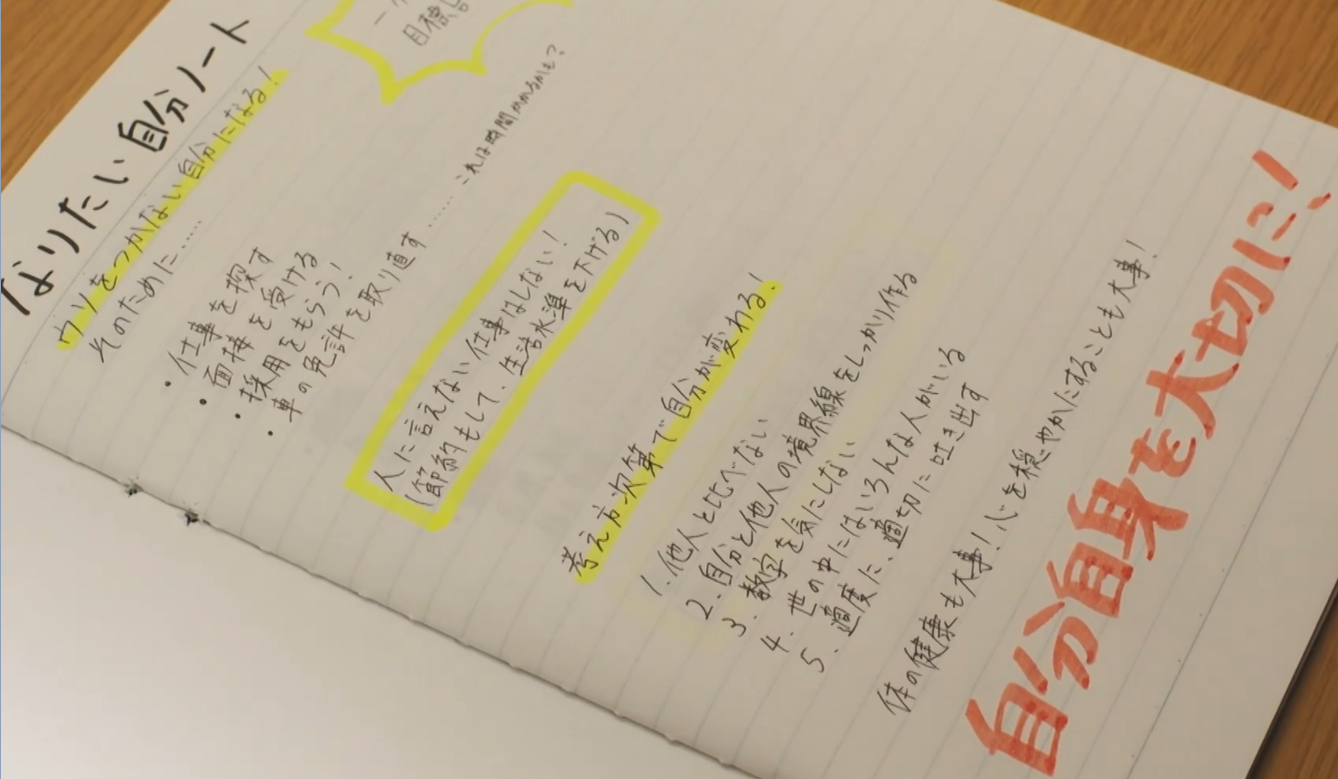 なりたい自分ノート
ウソをつかない自分になる!
そのために……
・仕事を探す
・面接を受ける
・採用をもらう!
・車の免許を取り直す……これは時間かかるかも?
目標
人に言えない仕事はしない!
(節約もして、生活水準を下げる)
考え方次第で自分が変わる!
1. 他人と比べない
2. 自分と他人の境界線をしっかり作る
3. 数字を気にしない
4. 世の中にはいろんな人がいる
5. 適度に、適切に吐き出す
体の健康も大事!心を穏やかにすることも大事!
自分自身を大切に!